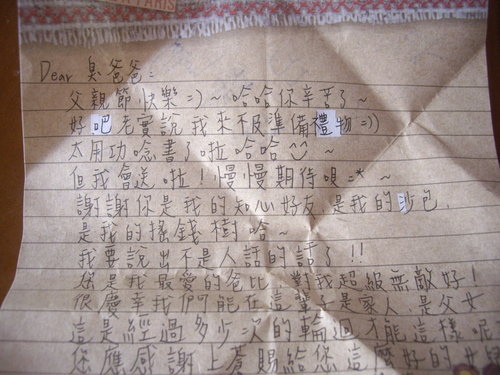 PARIS
Dear 臭爸爸:
父親節快樂=)~哈哈你辛苦了~
好吧老實說我來不及準備禮物=))
太用功唸書了啦哈哈^^~
但我會送啦!慢慢期待唄=*~
謝謝你是我的知心好友.是我的沙包.
是我的搖錢樹哈~
我要說出不是人話的話了!!
您是我最愛的爸比.對我超級無敵好!
很慶幸我們可能在這輩子是家人.是父女
這是經過多少次的輪迴才能這樣呢
您應感謝上蒼賜給您這麼好的女兒